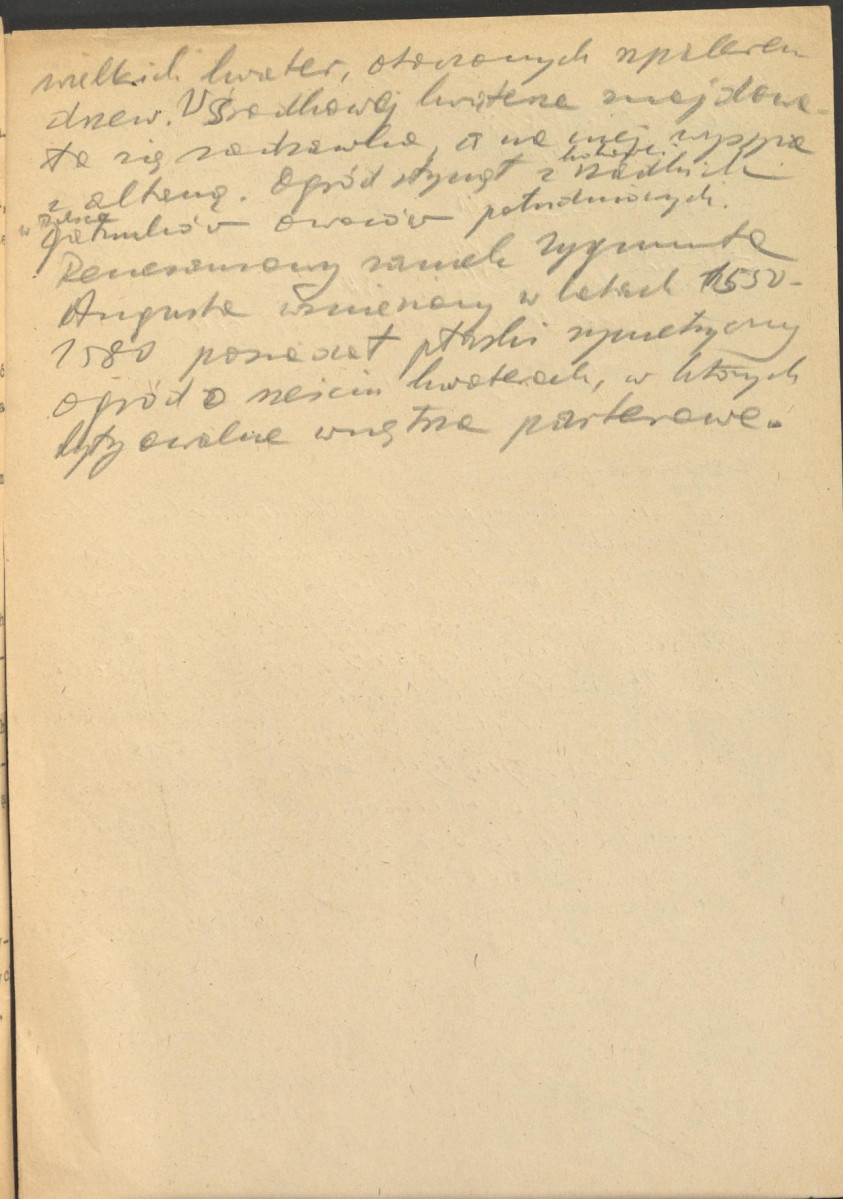 wielkich kwater, otoczonych szpalerem
drzew. W środkowej kwaterze znajdowa-
ła się sadzawka, a na niej wyspa
z altaną. Ogród słynął z rzadkich
w Polsce
gatunków owoców południowych.
Renesansowy zamek Zygmunta
Augusta wzniesiony w latach 1550-
1580 posiadał płaski symetryczny
ogród o sześciu kwaterach, w których
były owalne wnętrza parterowe.